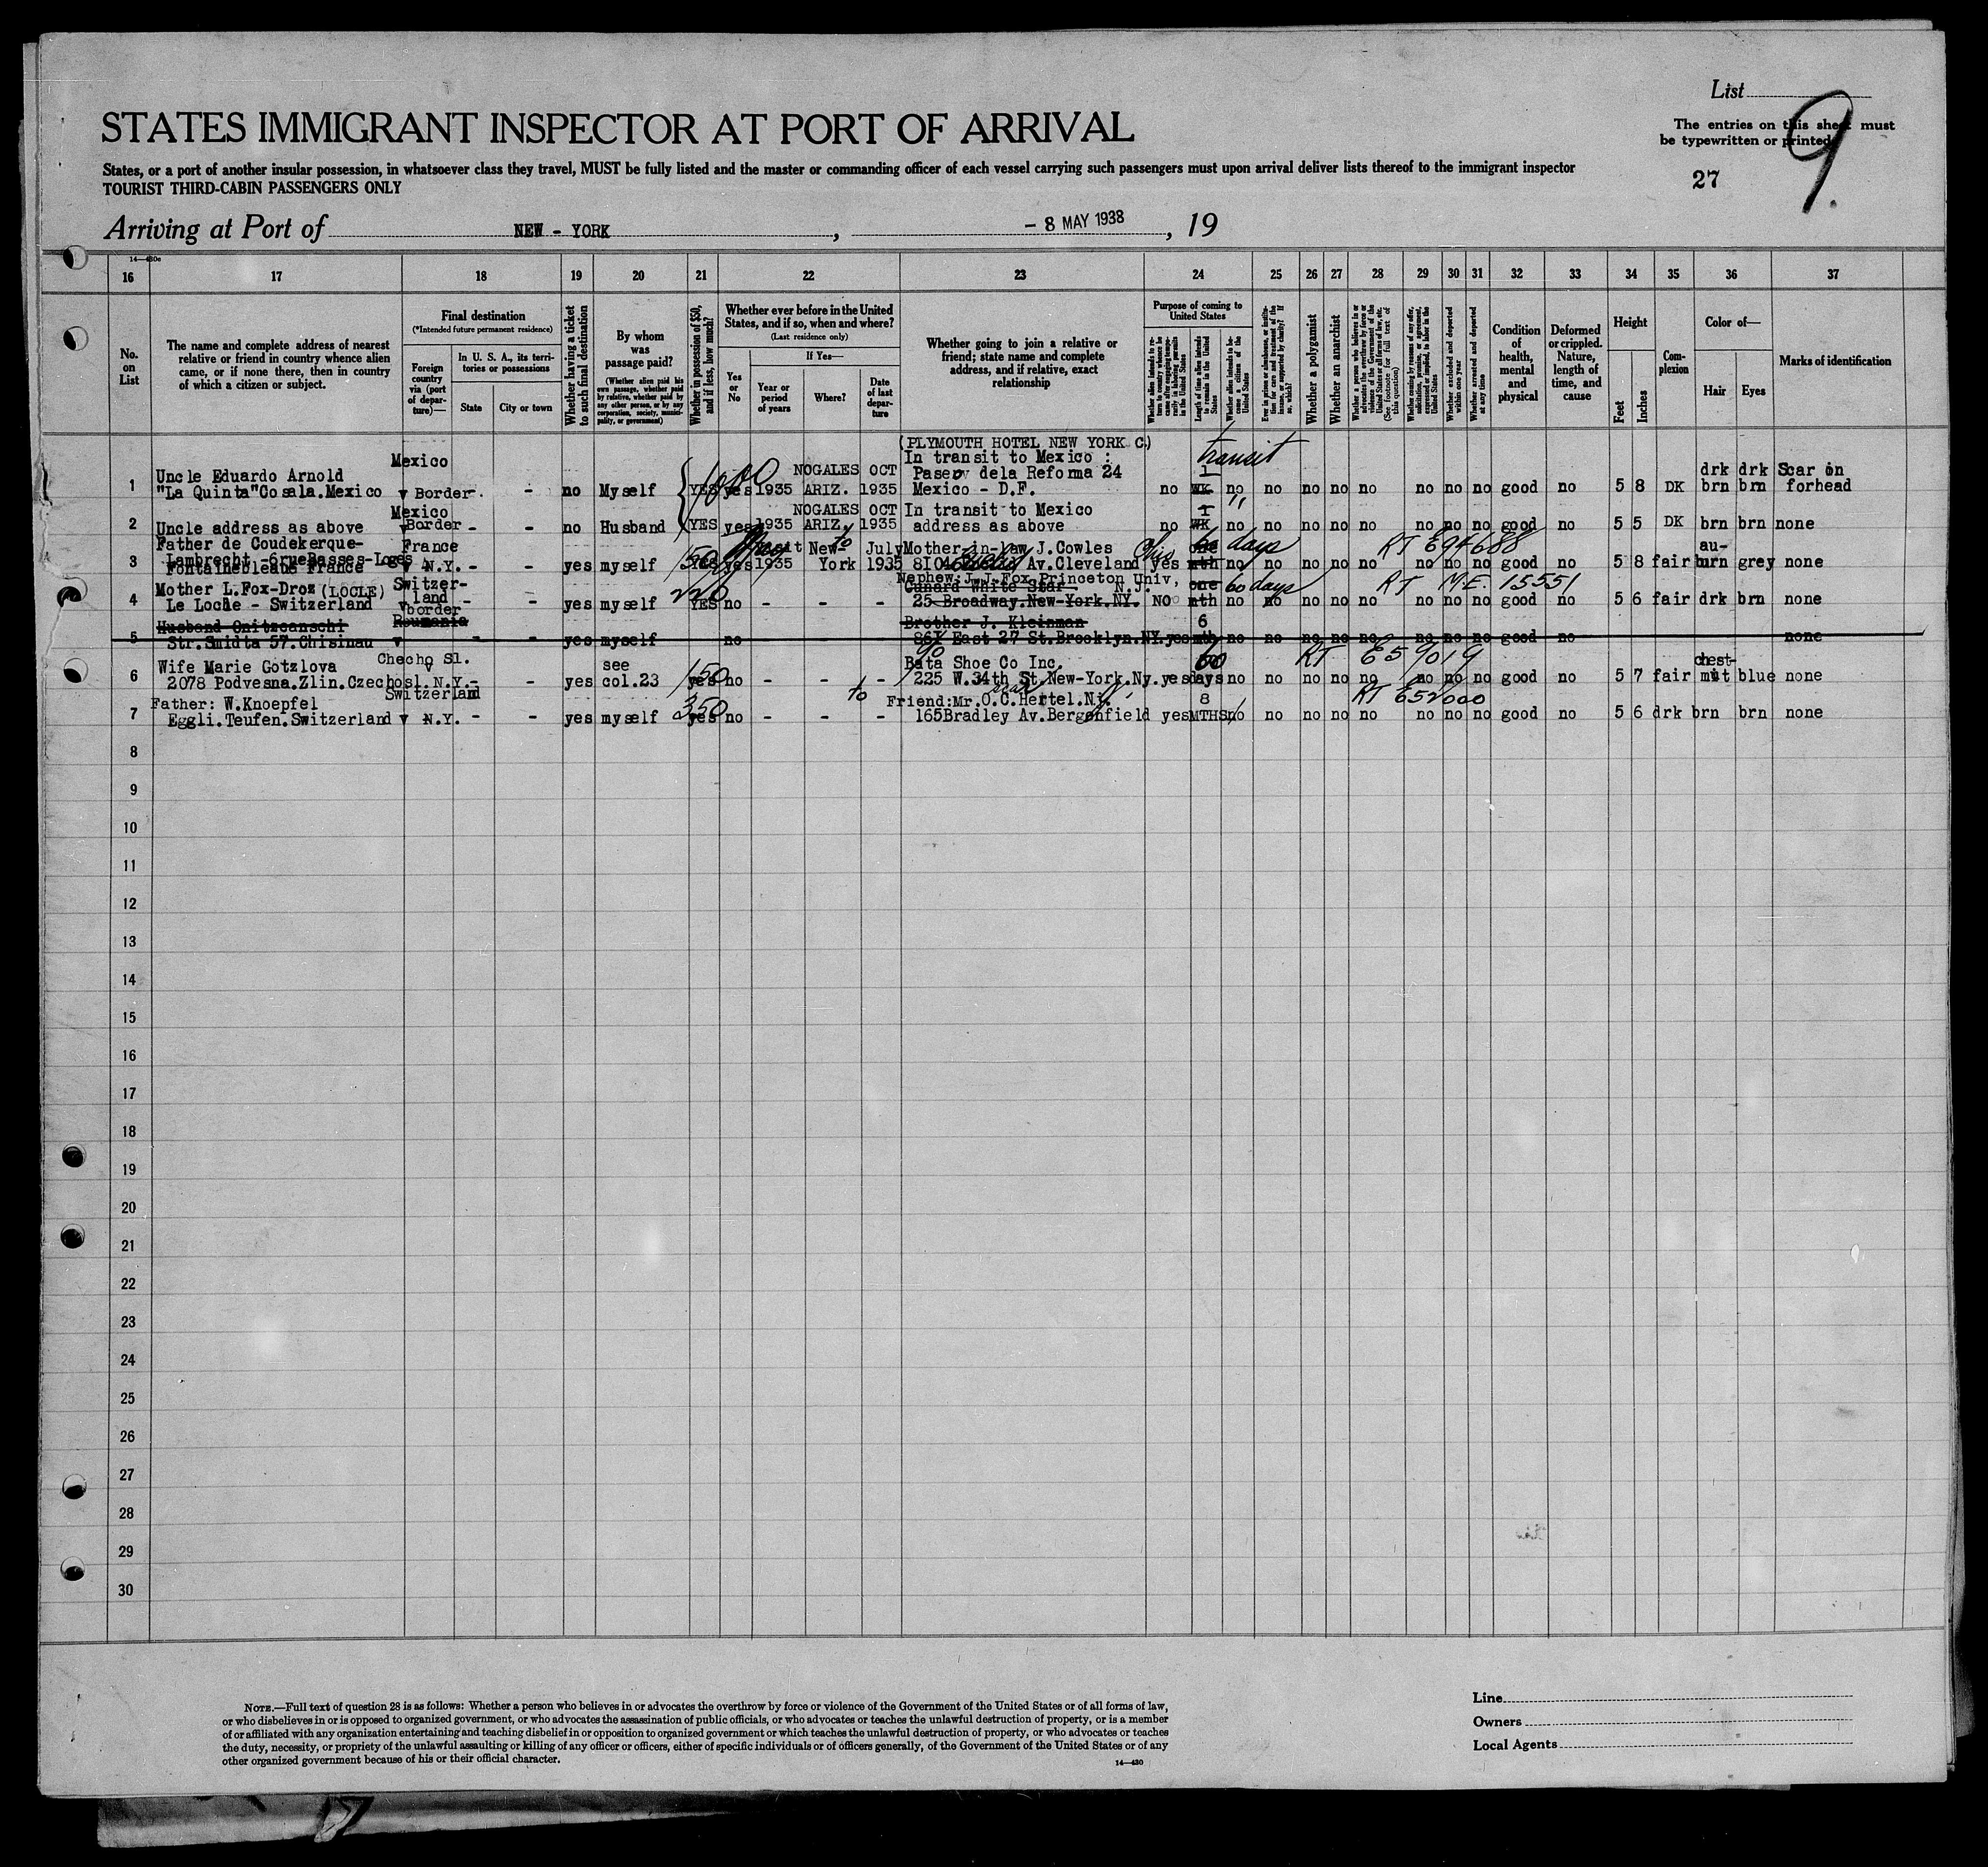 List
The entries on this sheet must
be typewritten or printed
9.
27
STATES IMMIGRANT INSPECTOR AT PORT OF ARRIVAL
States, or a port of another insular possession, in whatsoever class they travel, MUST be fully listed and the master or commanding officer of each vessel carrying such passengers must upon arrival deliver lists thereof to the immigrant inspector
TOURIST THIRD-CABIN PASSENGERS ONLY
Arriving at Port of NEW - YORK , - 8 MAY 1938 , 19
16 17 18 19 20 21 22 23 24 25 26 27 28 29 30 31 32 33 34 35 36 37
No. on List
The name and complete address of nearest relative or friend in country whence alien came, or if none there, then in country of which a citizen or subject.
Final destination
(*Intended future permanent residence)
Foreign country via (port of departure)—
In U. S. A., its territories or possessions
State
City or town
Whether having a ticket to such final destination
By whom was passage paid?
(Whether alien paid his own passage, whether paid by relative, whether paid by any other person, or by any corporation, society, municipality, or government)
Whether in possession of $50, and if less, how much?
Whether ever before in the United States, and if so, when and where?
(Last residence only)
Yes or No
If Yes—
Year or period of years
Where?
Date of last departure
Whether going to join a relative or friend; state name and complete address, and if relative, exact relationship
Purpose of coming to United States
Length of time alien intends to remain in the United States
Whether alien intends to become a citizen of the United States
Whether a polygamist
Whether an anarchist
Whether excluded and deported within one year
Whether arrested and deported at any time
Condition of health, mental and physical
Deformed or crippled. Nature, length of time, and cause
Height
Feet
Inches
Complexion
Color of—
Hair
Eyes
Marks of identification
(PLYMOUTH HOTEL NEW YORK C.)
Mexico In transit to Mexico : transit
Uncle Eduardo Arnold NOGALES OCT Paseo dela Reforma 24 1 drk drk Scar on
1 "La Quinta"Cosala.Mexico v Border - - no Myself YES 1000 yes 1935 ARIZ. 1935 Mexico - D.F. no WK no no no no no no no no good no 5 8 DK brn brn forhead
Mexico NOGALES OCT In transit to Mexico 1 "
2 Uncle address as above v Border - - no Husband YES yes 1935 ARIZ. 1935 address as above no WK no no no no no no no no good no 5 5 DK brn brn none
Father de Coudekerque- France New- to July Mother-in-law J.Cowles Ohio 60 days RT E94688 au-
3 Lambrecht
Fontainebleaue France v N.Y. - - yes myself YES yes 1935 York 1935 Av.Cleveland yes mth no no no no no no no no good no 5 8 fair brn grey none
Mother L.Fox-Droz (LOCLE) Switzer- Nephew: J.J.Fox Princeton Univ, N.J.
land Cunard White Star one 60 days RT M.E. 15551
4 Le Locle - Switzerland v border - - yes myself YES 220 no - - - 25 Broadway.New-York.NY. NO mth no no no no no no no no good no 5 6 fair drk brn none
Husband Onitzcanschi Roumania Brother J. Kleinman 6
5 Str.Smidta 57.Chisinau v - - yes myself no 861 East 27 St.Brooklyn.NY. yes mth no no no no no no no no good no none
Checho Sl. c/o 60 RT E59019 chest-
Wife Marie Gotzlova v see Bata Shoe Co Inc.
6 2078 Podvesna.Zlin.Czechosl. N.Y. - - yes col.23 yes 150 no - - - 225 W.34th St.New-York.Ny. yes days no no no no no no no no good no 5 7 fair nut blue none
Switzerland to
Father: W.Knoepfel Friend:Mr.O.C.Hertel.N.J. 8 RT E652000
7 Eggli.Teufen.Switzerland v N.Y. - - yes myself yes 350 no - - - 165Bradley Av.Bergenfield yes MTHS no no no no no no no no good no 5 6 drk brn brn none
8
9
10
11
12
13
14
15
16
17
18
19
20
21
22
23
24
25
26
27
28
29
30
NOTE.—Full text of question 28 is as follows: Whether a person who believes in or advocates the overthrow by force or violence of the Government of the United States or of all forms of law,
or who disbelieves in or is opposed to organized government, or who advocates the assassination of public officials, or who advocates or teaches the unlawful destruction of property, or is a member
of or affiliated with any organization entertaining and teaching disbelief in or opposition to organized government or which teaches the unlawful destruction of property, or who advocates or teaches
the duty, necessity, or propriety of the unlawful assaulting or killing of any officer or officers, either of specific individuals or of officers generally, of the Government of the United States or of any
other organized government because of his or their official character.
14—430
Line
Owners
Local Agents